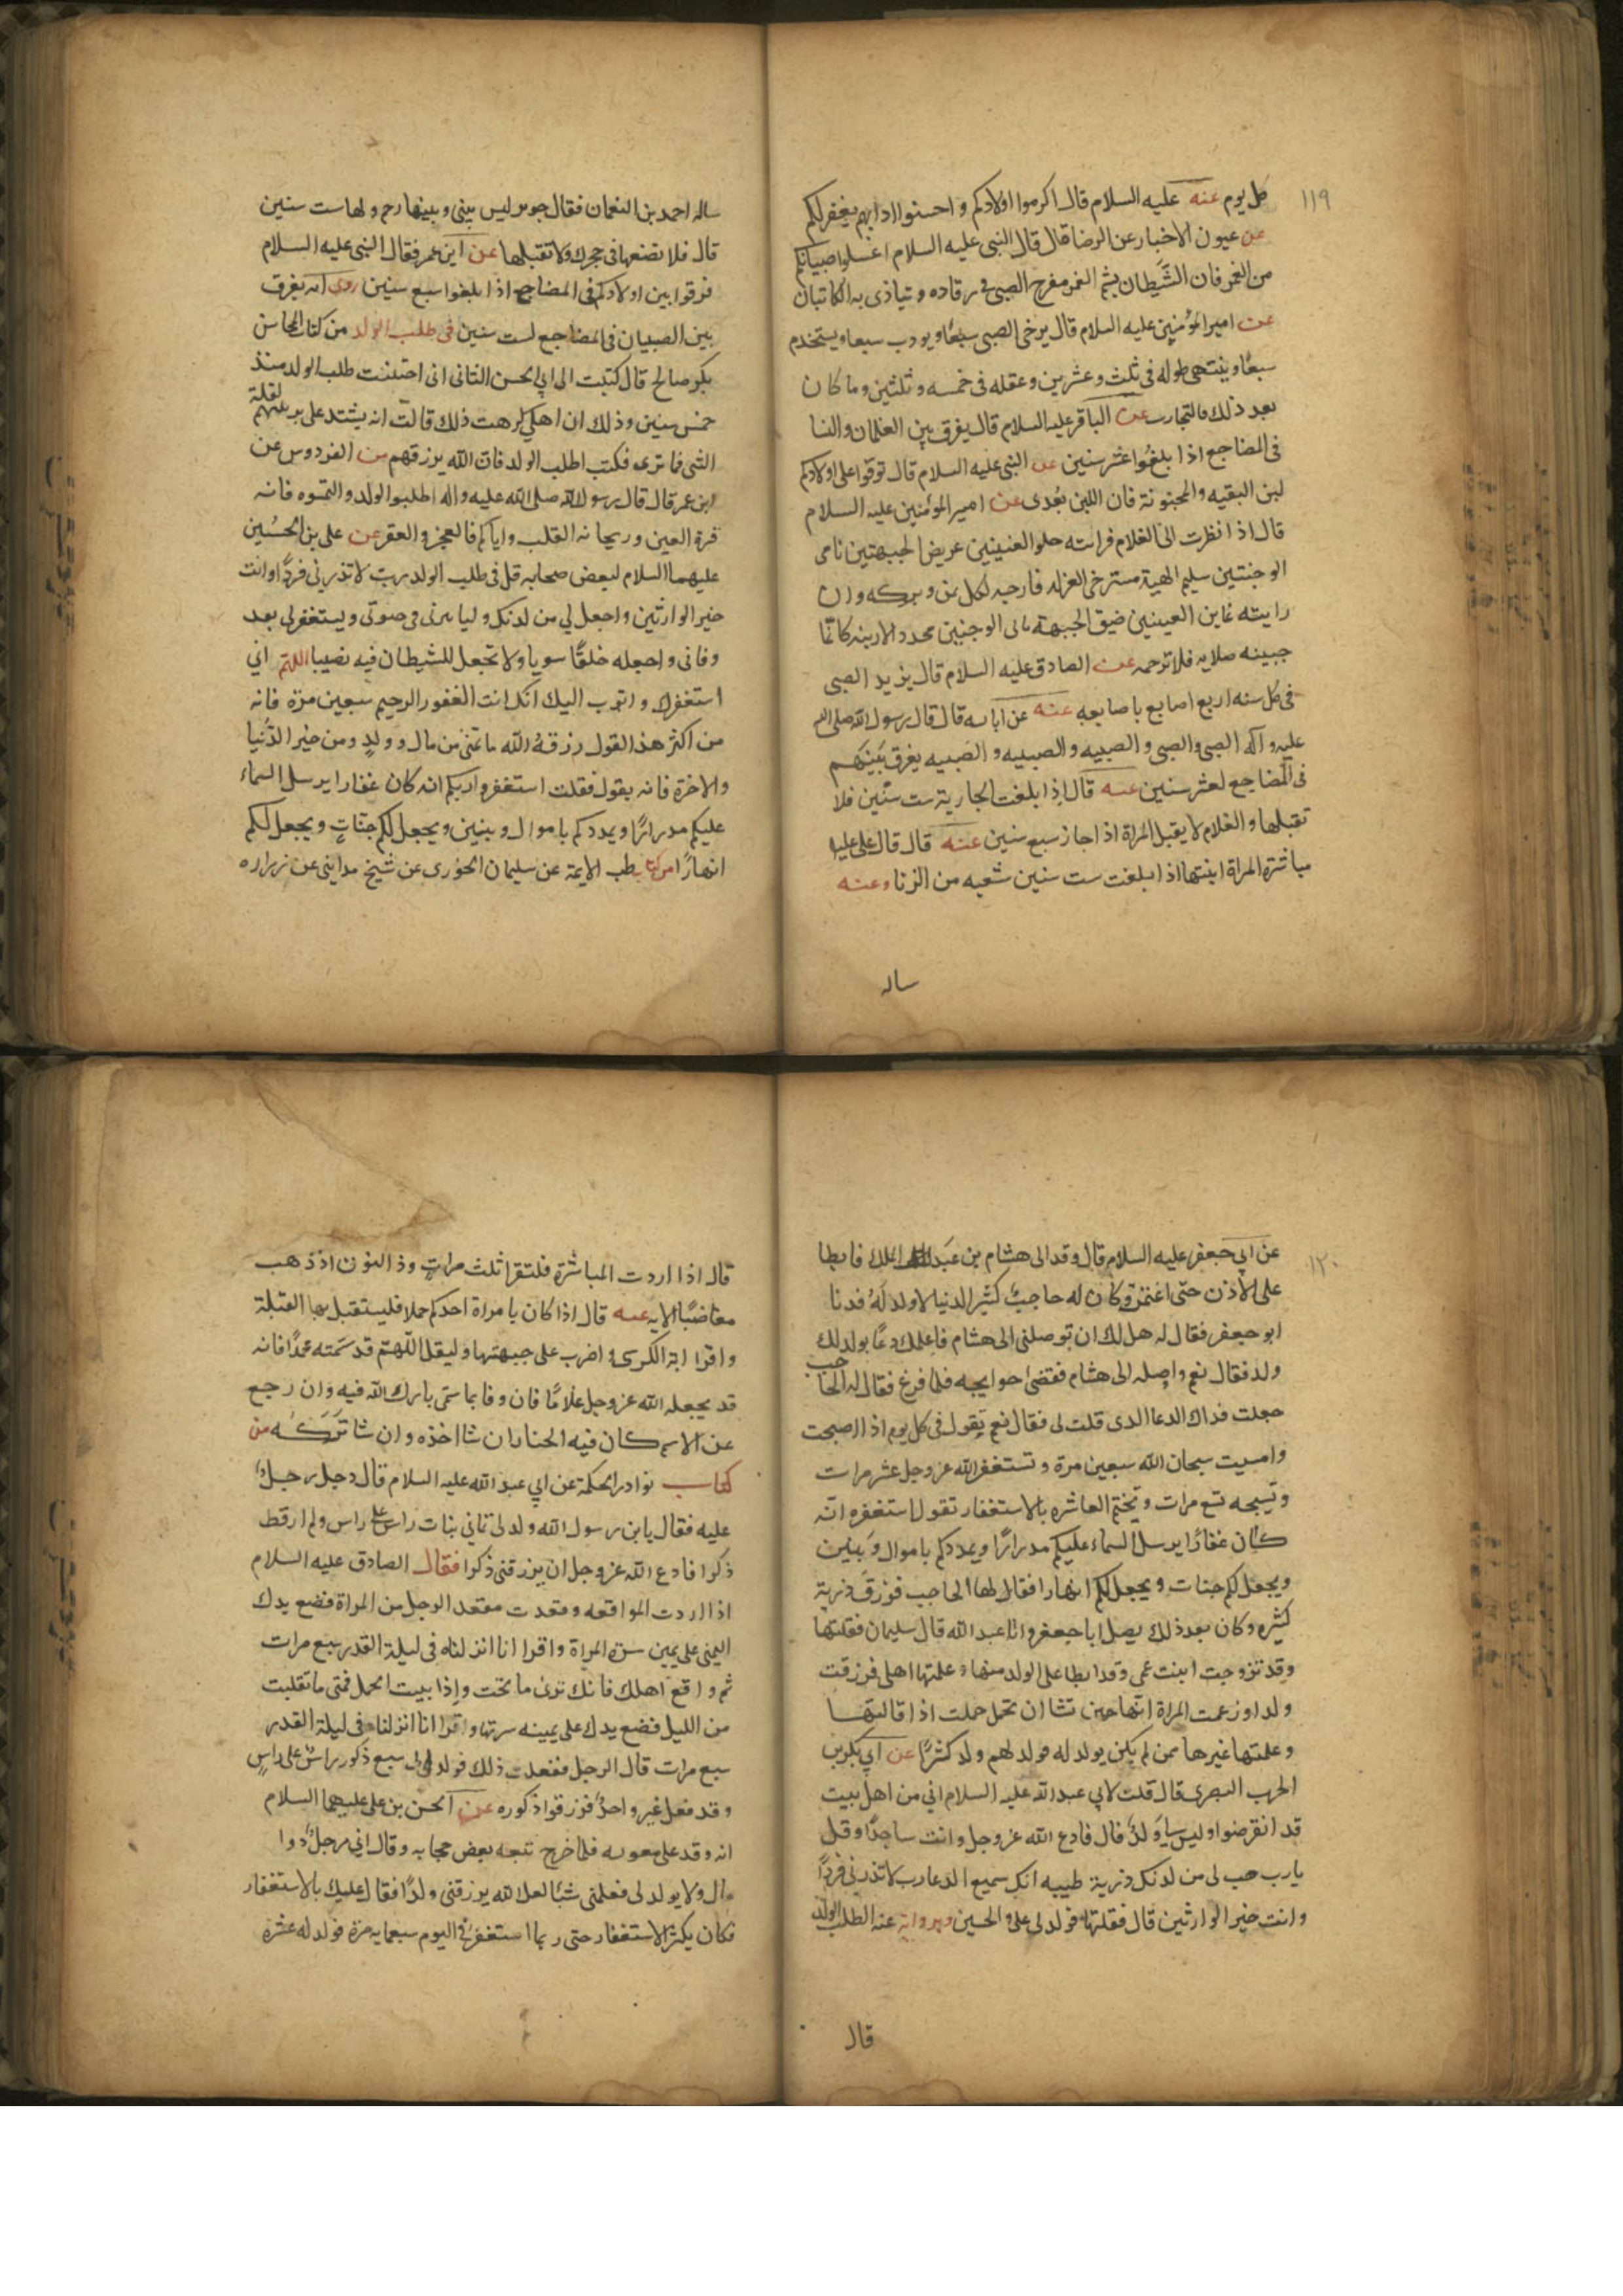 ١١٩
كل يوم عنه عليه السلام قال اكرموا اولادكم و احسنوا ادابهم يغفر لكم
عن عيون الاخبار عن الرضا قال قال النبي عليه السلام اغسلوا صبيانكم
من الغمر فان الشيطان يشم الغمر فيفزع الصبي في رقاده و يتاذى به الكاتبان
عن امير المؤمنين عليه السلام قال يرخى الصبي سبعا و يودب سبعا و يستخدم
سبعا و ينتهى طوله في ثلث و عشرين و عقله في خمسه و ثلثين و ما كان
بعد ذلك فالتجارب عن الباقر عليه السلام قال يفرق بين الغلمان و النسا
في المضاجع اذا بلغوا عشر سنين عن النبي عليه السلام قال توقوا على اولادكم
لبن البغيه و المجنونة فان اللبن يعدى عن امير المؤمنين عليه السلام
قال اذا نظرت الى الغلام فرايته حلو العينين عريض الجبهتين نامى
الوجنتين سليم الهيئة مسترخى العزله فارجه لكل يمن و بركه و ان
رايته غاير العينين ضيق الجبهة ناتى الوجنتين محدد الارنبه كانما
جبينه صلايه فلا ترجه عن الصادق عليه السلام قال يزيد الصبي
في كل سنه اربع اصابع باصابعه عنه عن ابايه قال قال رسول الله صلى الله
عليه و آله الصبي و الصبي و الصبيه و الصبيه و الصبيه يفرق بينهم
في المضاجع لعشر سنين عنه قال اذا بلغت الجارية ست سنين فلا
تقبلها و الغلام لا يقبل المراة اذا جاز سبع سنين عنه قال قال علي عليه
مباشرة المراة ابنتها اذا بلغت ست سنين شعبه من الزنا و عنه
ساله
ساله احمد بن النعمان فقال جوير ليس بينى و بينها رحم و لها ست سنين
قال فلا تضعها في حجرك و لا تقبلها عن ابن عمر فقال النبي عليه السلام
فرقوا بين اولادكم في المضاجع اذا بلغوا سبع سنين روى انه يفرق
بين الصبيان في المضاجع لست سنين في طلب الولد من كتاب المحاسن
بكر صالح قال كتبت الى ابي الحسن الثانى انى اجتنبت طلب الولد منذ
خمس سنين و ذلك ان اهلي كرهت ذلك قالت انه يشتد على تربيتهم لقلة
الشى فما ترى فكتب اطلب الولد فان الله يرزقهم من الفردوس عن
ابن عمر قال قال رسول الله صلى الله عليه و اله اطلبوا الولد و التمسوه فانه
قرة العين و ريحانه القلب و اياكم و العجز و العقر عن على بن الحسين
عليهما السلام لبعض اصحابه قل في طلب الولد رب لا تذرنى فردا و انت
خير الوارثين و اجعل لي من لدنك وليا يرثى في حيوتى و يستغفر لي بعد
وفاتى و اجعله خلقا سويا و لا تجعل للشيطان فيه نصيبا اللهم اني
استغفرك و اتوب اليك انك انت الغفور الرحيم سبعين مرة فانه
من اكثر هذا القول رزقه الله ما تمنى من مال و ولد و من خير الدنيا
و الاخرة فانه يقول فقلت استغفروا ربكم انه كان غفارا يرسل السماء
عليكم مدرارا و يمددكم باموال و بنين و يجعل لكم جنات و يجعل لكم
انهارا من كتاب طب الايمة عن سليمان الخورى عن شيخ مدايني عن زراره
١٢٠
عن ابي جعفر عليه السلام قال وفد الى هشام بن عبد الملك فابطا
على الاذن حتى اغتم و كان له حاجب كثير الدنيا لا ولد له فدنا
ابو جعفر فقال له هل لك ان توصلنى الى هشام فاعلمك دعا يولد لك
ولد فقال نعم و اوصله الى هشام فقضى حوايجه فلما فرغ فقال له الحاجب
جعلت فداك الدعا الذى قلت لي فقال نعم تقول في كل يوم اذا اصبحت
و امسيت سبحان الله سبعين مرة و تستغفر الله عز و جل عشر مرات
و تسبحه تسع مرات و تختم العاشره بالاستغفار تقول استغفره انه
كان غفارا يرسل السماء عليكم مدرارا و يمددكم باموال و بنين
و يجعل لكم جنات و يجعل لكم انهارا فقالها الحاجب فرزق ذرية
كثيره و كان بعد ذلك يصل ابا جعفر و ابا عبد الله قال سليمان فقلتها
و قد تزوجت ابنت عمى و قد ابطا على الولد منها و علمتها اهلى فرزقت
ولدا و زعمت المراة انها حين تشا ان تحمل حملت اذا قالتها
و علمتها غيرها ممن لم يكن يولد له فولد لهم ولد كثيرا عن ابي بكر بن
الحرب البصرى قال قلت لابي عبد الله عليه السلام اني من اهل بيت
قد انقرضوا و ليس لي ولد قال فادع الله عز و جل و انت ساجدا و قل
يا رب هب لي من لدنك ذرية طيبه انك سميع الدعا رب لا تذرني فردا
و انت خير الوارثين قال فقلتها فولد لي على و الحسين و بروايه عنه لطلب الولد
قال
قال اذا اردت المباشرة فلتقرا ثلث مرات و ذا النون اذ ذهب
مغاضبا الايه عنه قال اذا كان بامراة احدكم حملا فليستقبل بها القبلة
و اقرا اية الكرسى و اضرب على جبهتها و ليقل اللهم قد سميته محمدا فانه
قد يجعله الله عز و جل غلاما فان وفا بما سمى بارك الله فيه و ان رجع
عن الاسم كان فيه الخيار ان شا اخذه و ان شا تركه من
كتاب نوادر الحكمة عن ابي عبد الله عليه السلام قال دخل رجل
عليه فقال يا بن رسول الله ولد لي ثماني بنات راس على راس و لم ار قط
ذكرا فادع الله عز و جل ان يرزقنى ذكرا فقال الصادق عليه السلام
اذا اردت المواقعه و قعدت مقعد الرجل من المراة فضع يدك
اليمنى على يمين سرة المراة و اقرا انا انزلناه في ليلة القدر سبع مرات
ثم واقع اهلك فانك ترى ما تحب و اذا تبينت الحمل فمتى ما تقلبت
من الليل فضع يدك على يمينه سرتها و اقرا انا انزلناه في ليلة القدر
سبع مرات قال الرجل ففعلت ذلك فولد لي سبع ذكور راس على راس
و قد فعل غير واحد فرزقوا ذكوره عن الحسن بن على عليهما السلام
انه وفد على معويه فلما خرج تبعه بعض حجابه و قال اني رجل ذوا
مال و لا يولد لي فعلمنى شيئا لعل الله يرزقنى ولدا فقال عليك بالاستغفار
فكان يكثر الاستغفار حتى ربما استغفر في اليوم سبعمايه مرة فولد له عشرة